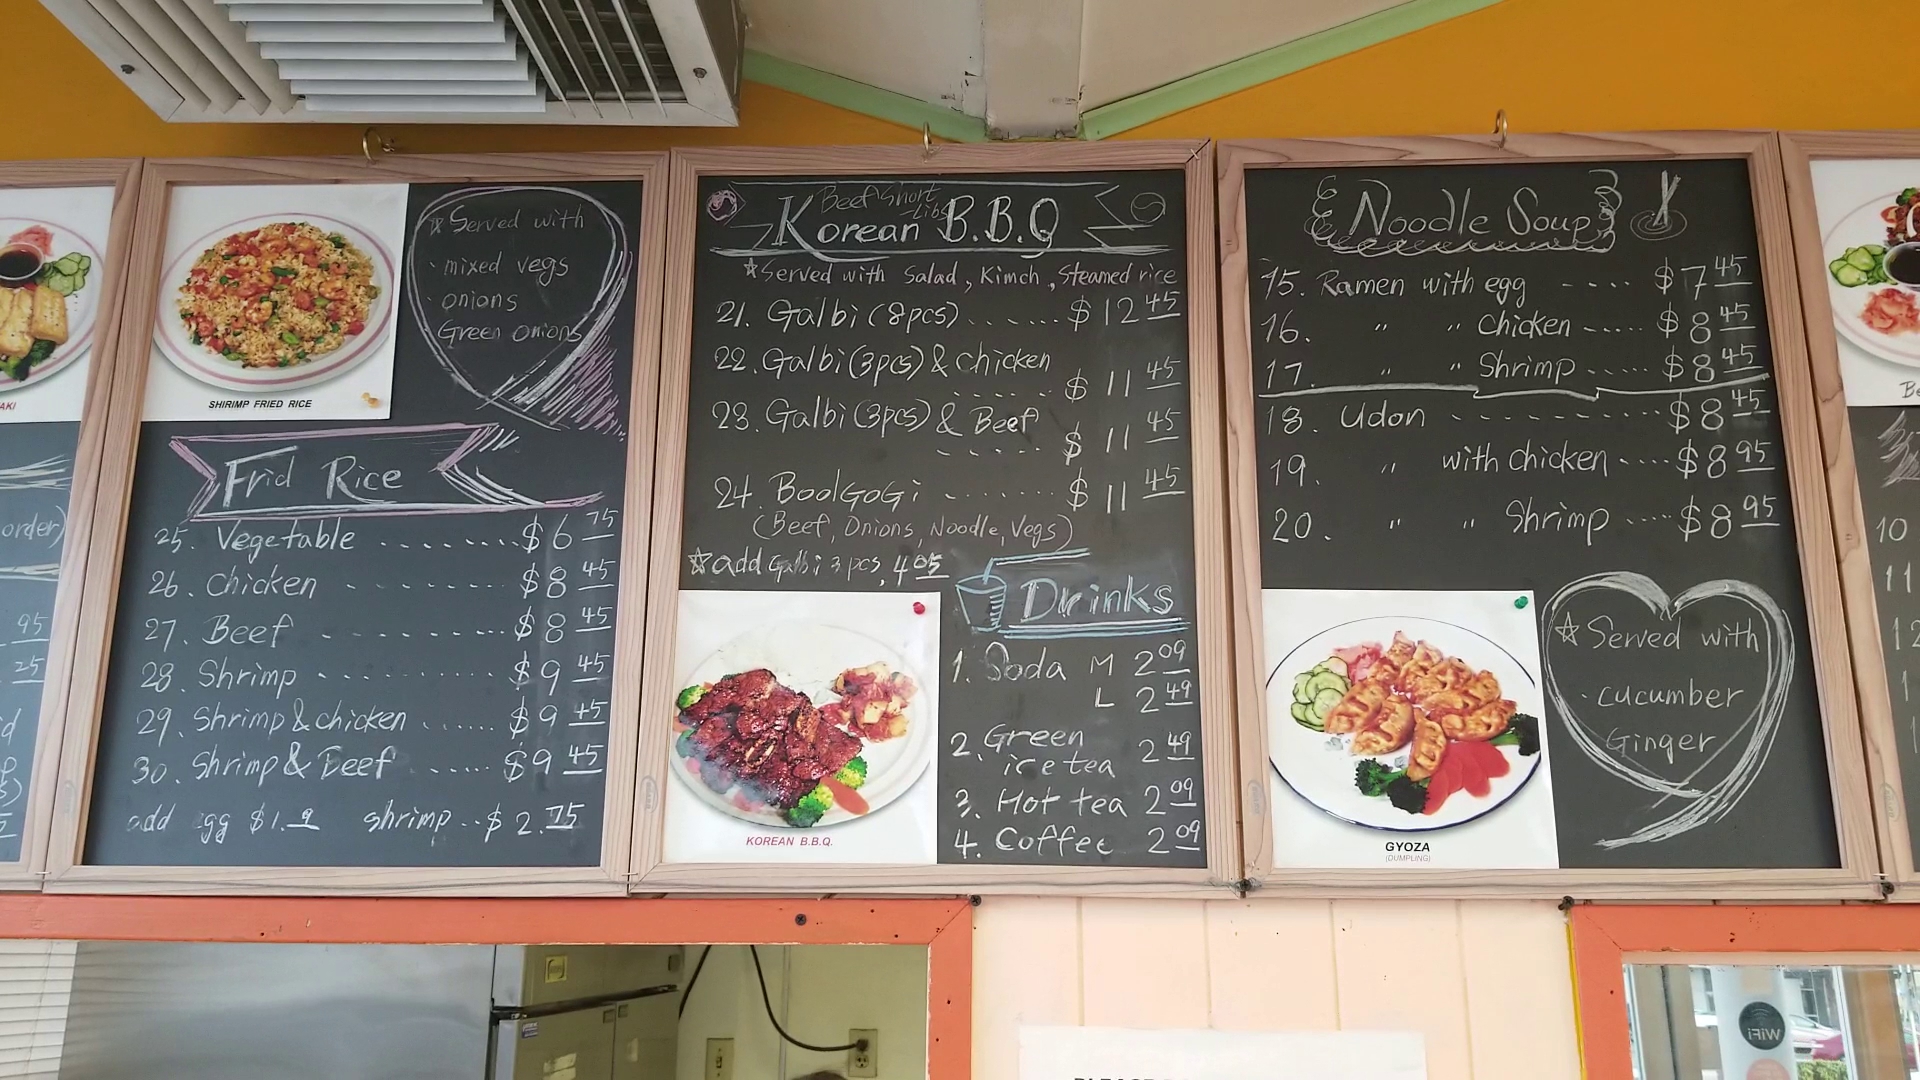 AKI
order)
95
25
SHIRIMP FRIED RICE
☆ Served with
· mixed vegs
· onions
· Green onions
Frid Rice
25. Vegetable ........ $6 75
26. Chicken ........ $8 45
27. Beef ........ $8 45
28. Shrimp ........ $9 45
29. Shrimp & chicken ..... $9 45
30. Shrimp & Beef ..... $9 45
add egg $1. shrimp .. $2.75
Beef Short
Libs
Korean B.B.Q
☆ Served with Salad, Kimch, Steamed rice
21. Galbi (8pcs) ...... $12 45
22. Galbi (3pcs) & chicken
..... $11 45
23. Galbi (3pcs) & Beef
..... $11 45
24. BoolGoGi ....... $11 45
(Beef, Onions, Noodle, Vegs)
☆ add Galbi 3 pcs, 4 05
KOREAN B.B.Q.
Drinks
1. Soda M 2 09
L 2 49
2. Green
ice tea 2 49
3. Hot tea 2 09
4. Coffee 2 09
Noodle Soup
15. Ramen with egg .... $7 45
16. " " chicken ..... $8 45
17. " " Shrimp ..... $8 45
18. Udon .......... $8 45
19. " with chicken .... $8 95
20. " " Shrimp .... $8 95
GYOZA
(DUMPLING)
☆ Served with
· cucumber
Ginger
10
11
12
WiFi